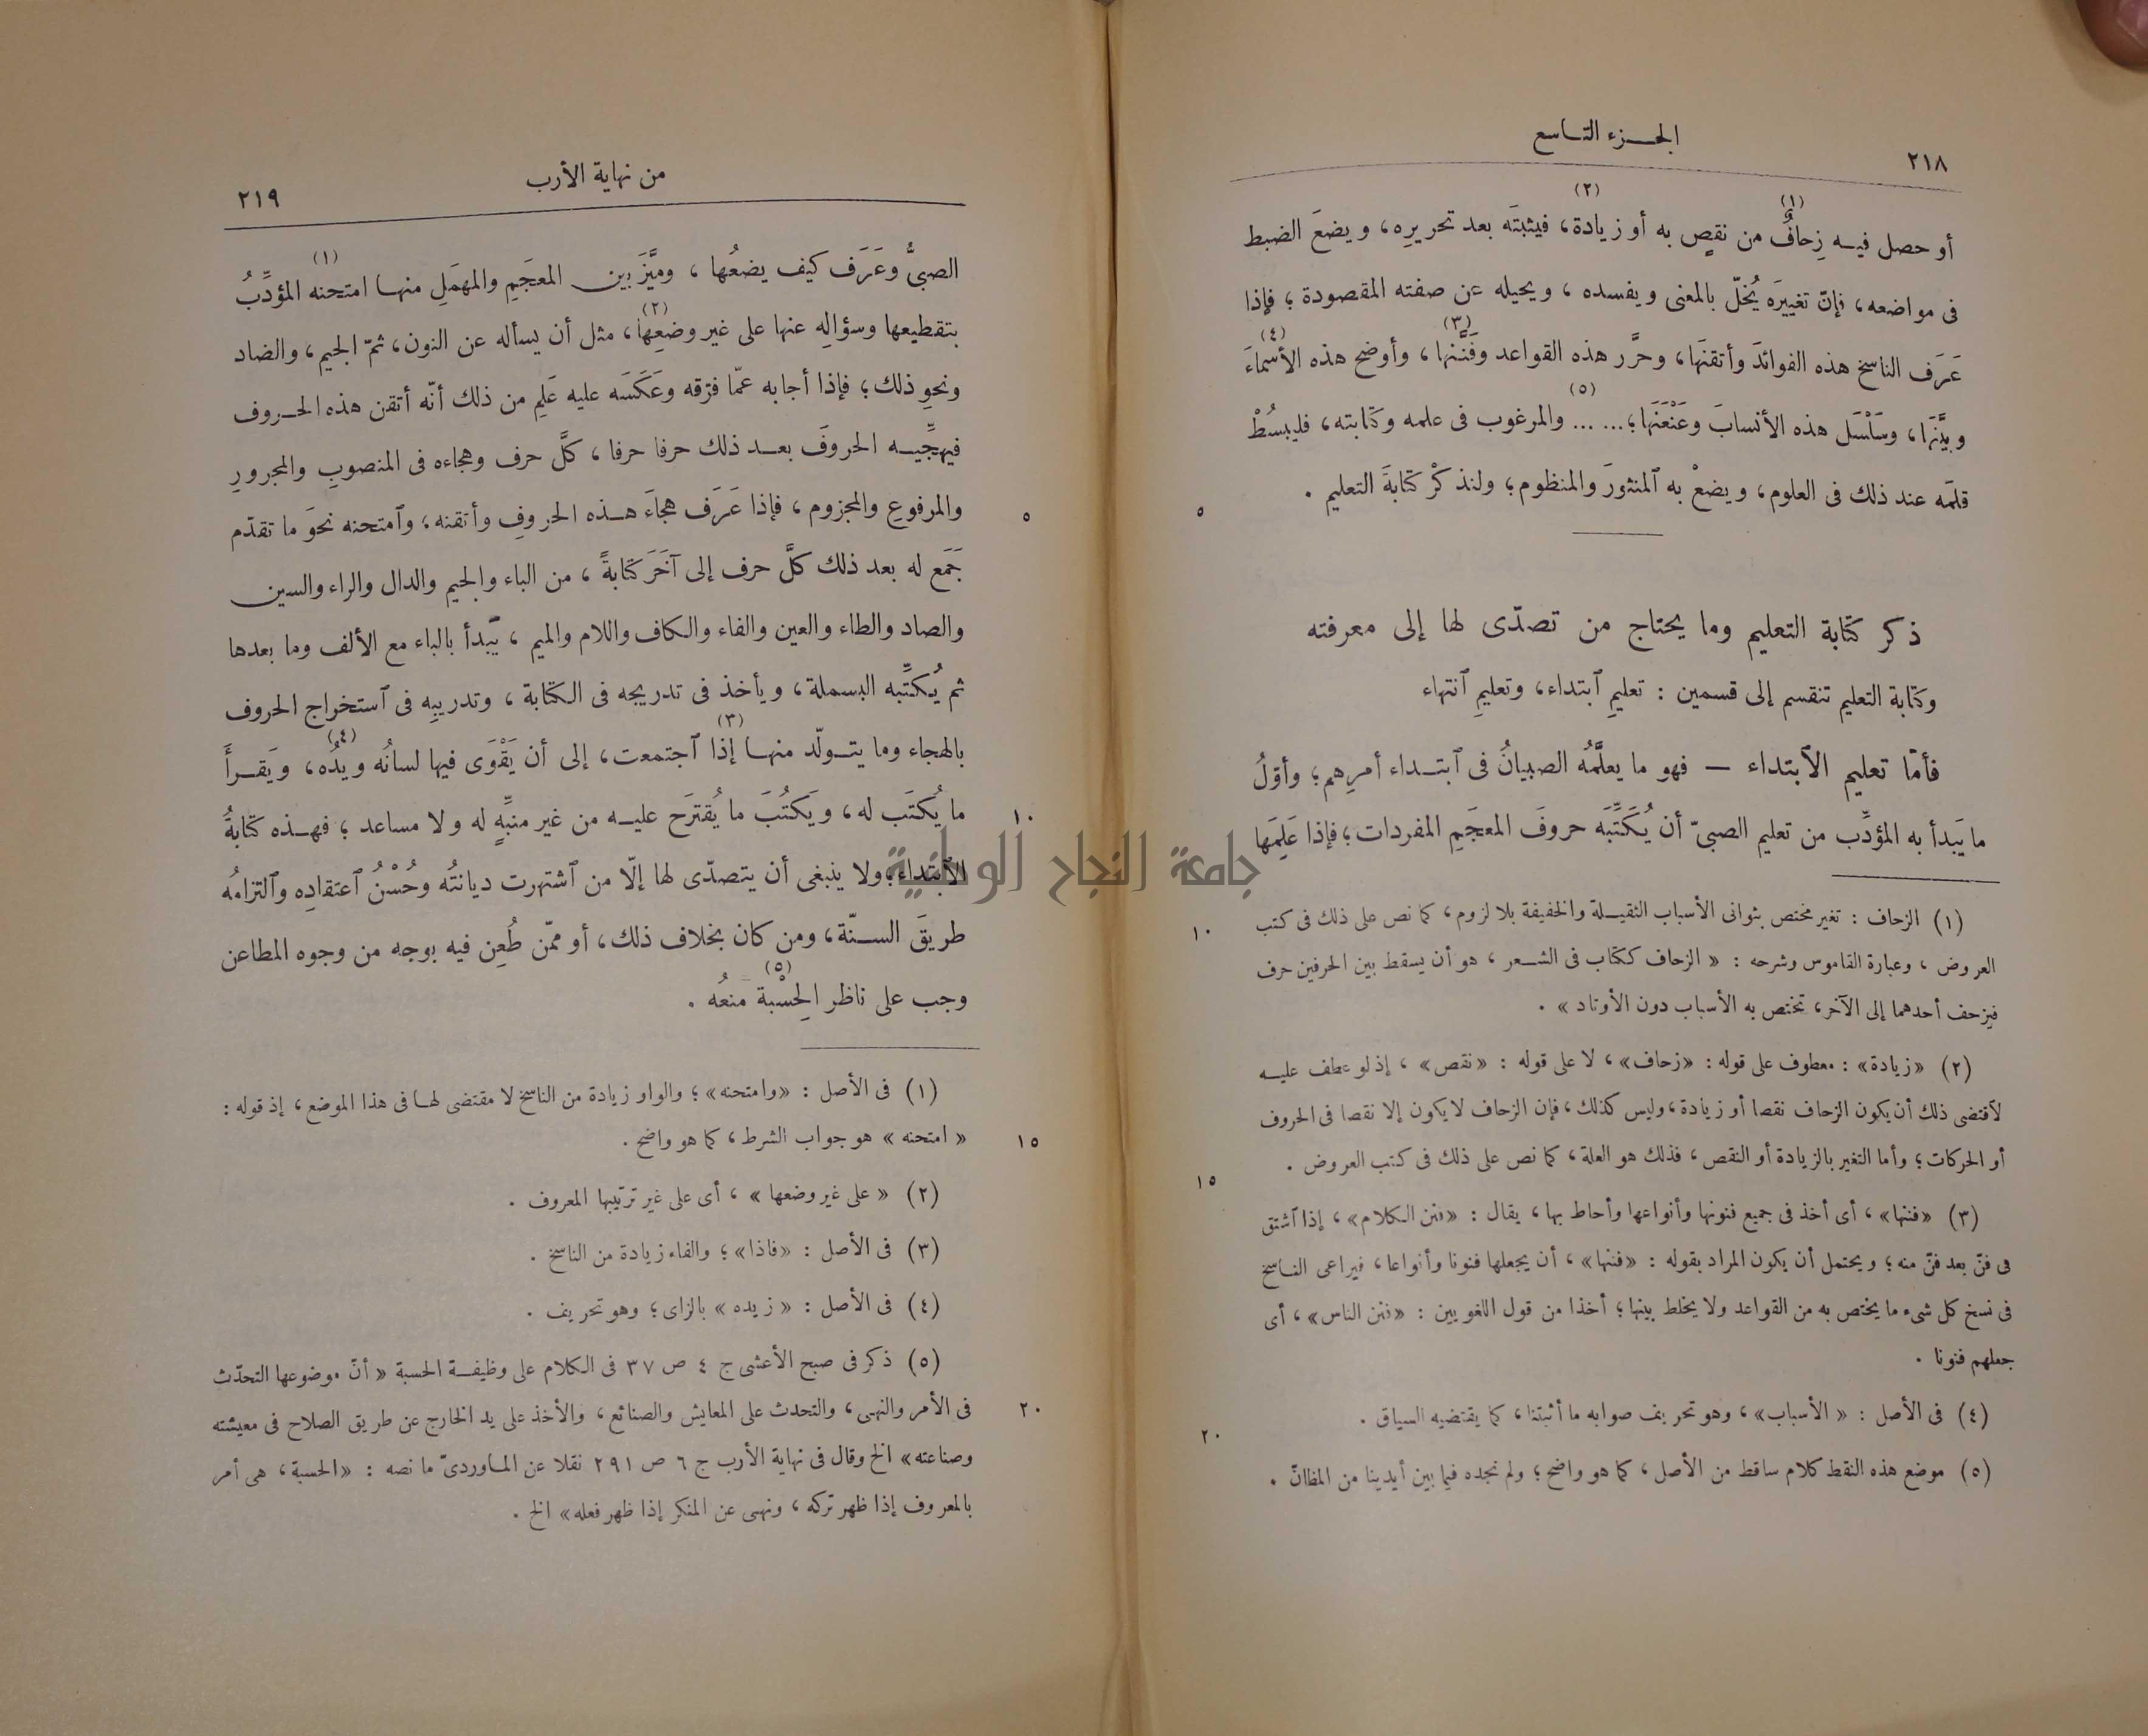 الجزء التاسع
٢١٨
أو حصل فيه زِحافٌ(١) من نقصٍ به أو زيادة(٢)، فيثبتَه بعد تحريرِه، ويضعَ الضبط
فى مواضعه، فإنّ تغييرَه يُخلّ بالمعنى ويفسده، ويحيله عن صفته المقصودة؛ فإذا
عَرَف الناسخ هذه الفوائدَ وأتقنَها، وحرَّر هذه القواعد وفَنَّنها(٣)، وأوضح هذه الأسماءَ(٤)
وبيَّنها، وسَلْسَل هذه الأنسابَ وعَنْعَنَها؛ ... ...(٥) والمرغوب فى علمه وكتابته، فليبسُطْ
قلمَه عند ذلك فى العلوم، ويضعْ به ٱلمنثورَ والمنظوم؛ ولنذكرْ كتابةَ التعليم .
٥
ذكر كتابة التعليم وما يحتاج من تصدّى لها إلى معرفته
وكتابة التعليم تنقسم إلى قسمين : تعليمِ ٱبتداء، وتعليمِ ٱنتهاء
فأمّا تعليم الٱبتداء — فهو ما يعلَّمُه الصبيانُ فى ٱبتداء أمرِهم؛ وأوّلُ
ما يَبدأ به المؤدِّب من تعليم الصبىّ أن يُكَتِّبَه حروفَ المعجَمِ المفردات؛ فإذا عَلِمَها
(١) الزحاف : تغير مختص بثوانى الأسباب الثقيلة والخفيفة بلا لزوم، كما نص على ذلك فى كتب
١٠
العروض، وعبارة القاموس وشرحه : « الزحاف ككتاب فى الشعر، هو أن يسقط بين الحرفين حرف
فيزحف أحدهما إلى الآخر، تختص به الأسباب دون الأوتاد » .
(٢) «زيادة» : معطوف على قوله : «زحاف»، لا على قوله : «نقص»، إذ لو عطف عليه
لاقتضى ذلك أن يكون الزحاف نقصا أو زيادة، وليس كذلك، فإن الزحاف لا يكون إلا نقصا فى الحروف
أو الحركات؛ وأما التغير بالزيادة أو النقص، فذلك هو العلة، كما نص على ذلك فى كتب العروض .
١٥
(٣) «فننها»، أى أخذ فى جميع فنونها وأنواعها وأحاط بها، يقال : «فنن الكلام»، إذا ٱشتق
فى فنّ بعد فنّ منه؛ ويحتمل أن يكون المراد بقوله : «فننها»، أن يجعلها فنونا وأنواعا، فيراعى الناسخ
فى نسخ كل شىء ما يختص به من القواعد ولا يخلط بينها؛ أخذا من قول اللغويين : «فنن الناس»، أى
جعلهم فنونا .
(٤) فى الأصل : « الأسباب»، وهو تحريف صوابه ما أثبتنا، كما يقتضيه السياق .
٢٠
(٥) موضع هذه النقط كلام ساقط من الأصل، كما هو واضح؛ ولم نجده فيما بين أيدينا من المظانّ .
من نهاية الأرب
٢١٩
الصبىُّ وعَرَف كيف يضعُها، وميَّزَ بين المعجَمِ والمهمَلِ منها امتحنه(١) المؤدِّبُ
بتقطيعها وسؤالِه عنها على غير وضعِها(٢)، مثل أن يسأله عن النون، ثمّ الجيم، والضاد
ونحوِ ذلك؛ فإذا أجابه عمّا فرّقه وعَكَسَه عليه عَلِم من ذلك أنّه أتقن هذه الحروف
فيهجِّيه الحروفَ بعد ذلك حرفا حرفا، كلَّ حرف وهجاءه فى المنصوبِ والمجرورِ
والمرفوعِ والمجزوم، فإذا عَرَف هجاءَ هذه الحروفِ وأتقنه، وٱمتحنه نحوَ ما تقدّم
٥
جَمَع له بعد ذلك كلَّ حرف إلى آخَرَ كتابةً، من الباء والجيم والدال والراء والسين
والصاد والطاء والعين والفاء والكاف واللام والميم، يَبدأ بالباء مع الألف وما بعدها
ثم يُكتِّبه البسملة، ويأخذ فى تدريجه فى الكتابة، وتدريبِه فى ٱستخراج الحروف
بالهجاء وما يتولّد منها إذا(٣) ٱجتمعت، إلى أن يَقْوَى فيها لسانُه ويدُه(٤)، ويَقرأَ
ما يُكتَب له، ويَكتُبَ ما يُقترَح عليه من غير منبِّهٍ له ولا مساعد؛ فهذه كتابةُ
١٠
الٱبتداء؛ ولا ينبغى أن يتصدّى لها إلّا من ٱشتهرت ديانتُه وحُسْنُ ٱعتقادِه وٱلتزامُه
طريقَ السنّة، ومن كان بخلاف ذلك، أو ممّن طُعِن فيه بوجه من وجوه المطاعن
وجب على ناظر الحِسْبة(٥) منعُه .
(١) فى الأصل : «وامتحنه»؛ والواو زيادة من الناسخ لا مقتضى لها فى هذا الموضع، إذ قوله :
« امتحنه » هو جواب الشرط، كما هو واضح .
١٥
(٢) « على غير وضعها »، أى على غير ترتيبها المعروف .
(٣) فى الأصل : «فاذا»؛ والفاء زيادة من الناسخ .
(٤) فى الأصل : « زيده » بالزاى؛ وهو تحريف .
(٥) ذكر فى صبح الأعشى ج ٤ ص ٣٧ فى الكلام على وظيفة الحسبة « أنّ موضوعها التحدّث
فى الأمر والنهى، والتحدث على المعايش والصنائع، والأخذ على يد الخارج عن طريق الصلاح فى معيشته
٢٠
وصناعته» الخ وقال فى نهاية الأرب ج ٦ ص ٢٩١ نقلا عن الماوردىّ ما نصه : «الحسبة، هى أمر
بالمعروف إذا ظهر تركه، ونهى عن المنكر إذا ظهر فعله» الخ .
جامعة النجاح الوطنية